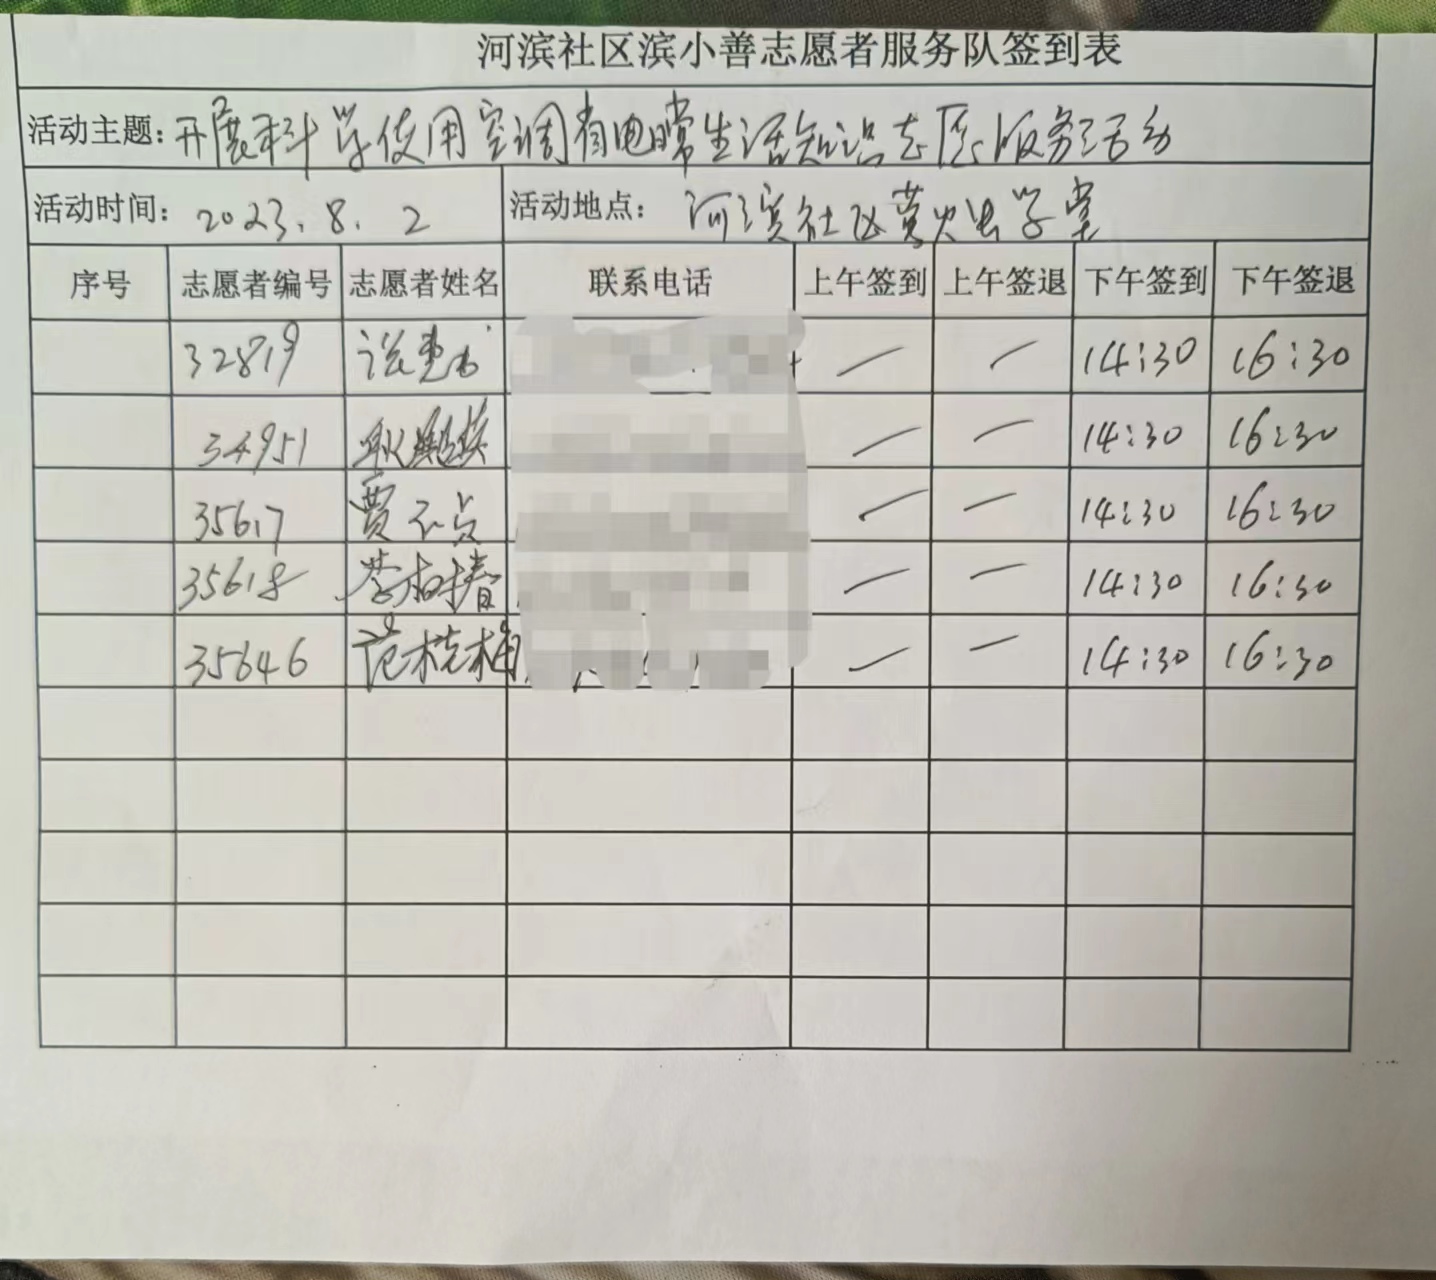 河滨社区滨小善志愿者服务队签到表
活动主题：开展科学使用空调省电日常生活知识志愿服务活动
活动时间：2023.8.2 活动地点：河滨社区萤火虫学堂
序号 志愿者编号 志愿者姓名 联系电话 上午签到 上午签退 下午签到 下午签退
32819 — — 14:30 16:30
34951 — — 14:30 16:30
35617 贾 — — 14:30 16:30
35618 李 春 — — 14:30 16:30
35646 范桂梅 — — 14:30 16:30